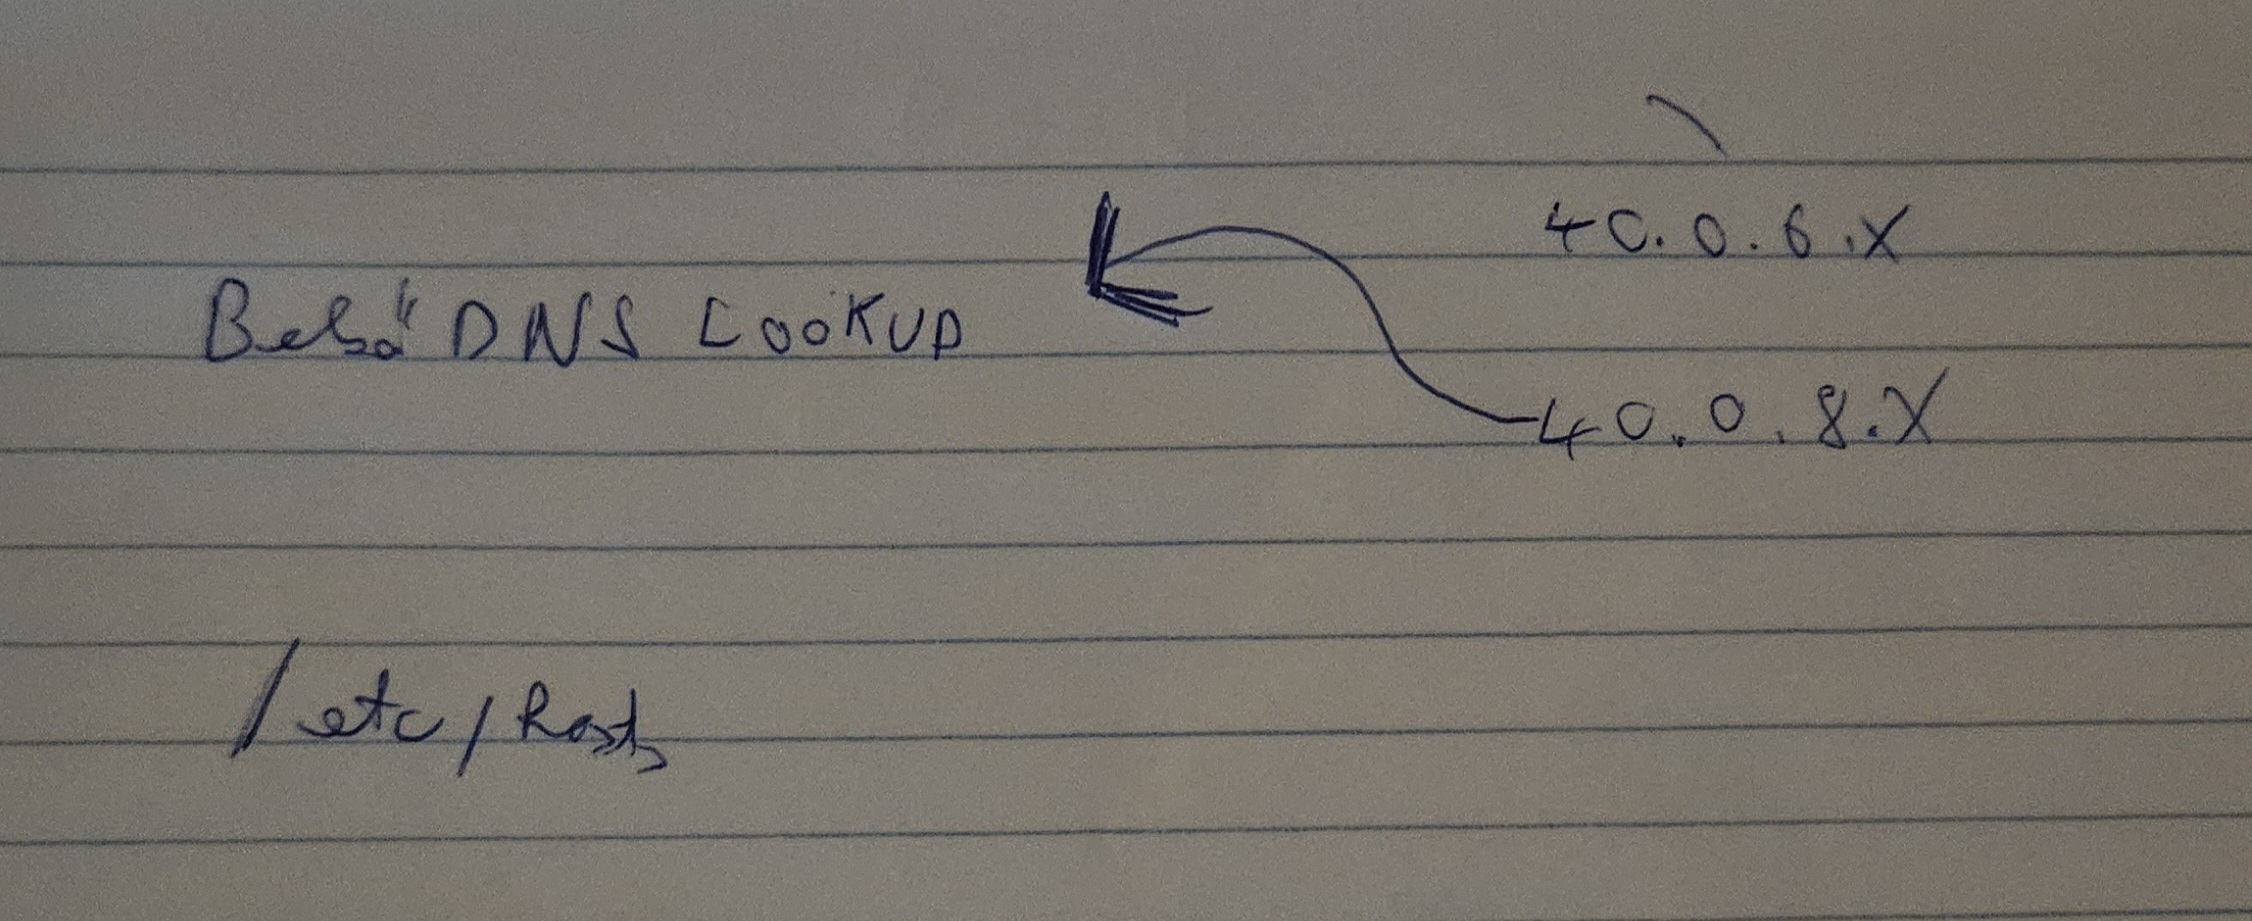 40.0.6.X
Belső DNS LOOKUP
40.0.8.X
/etc/hosts